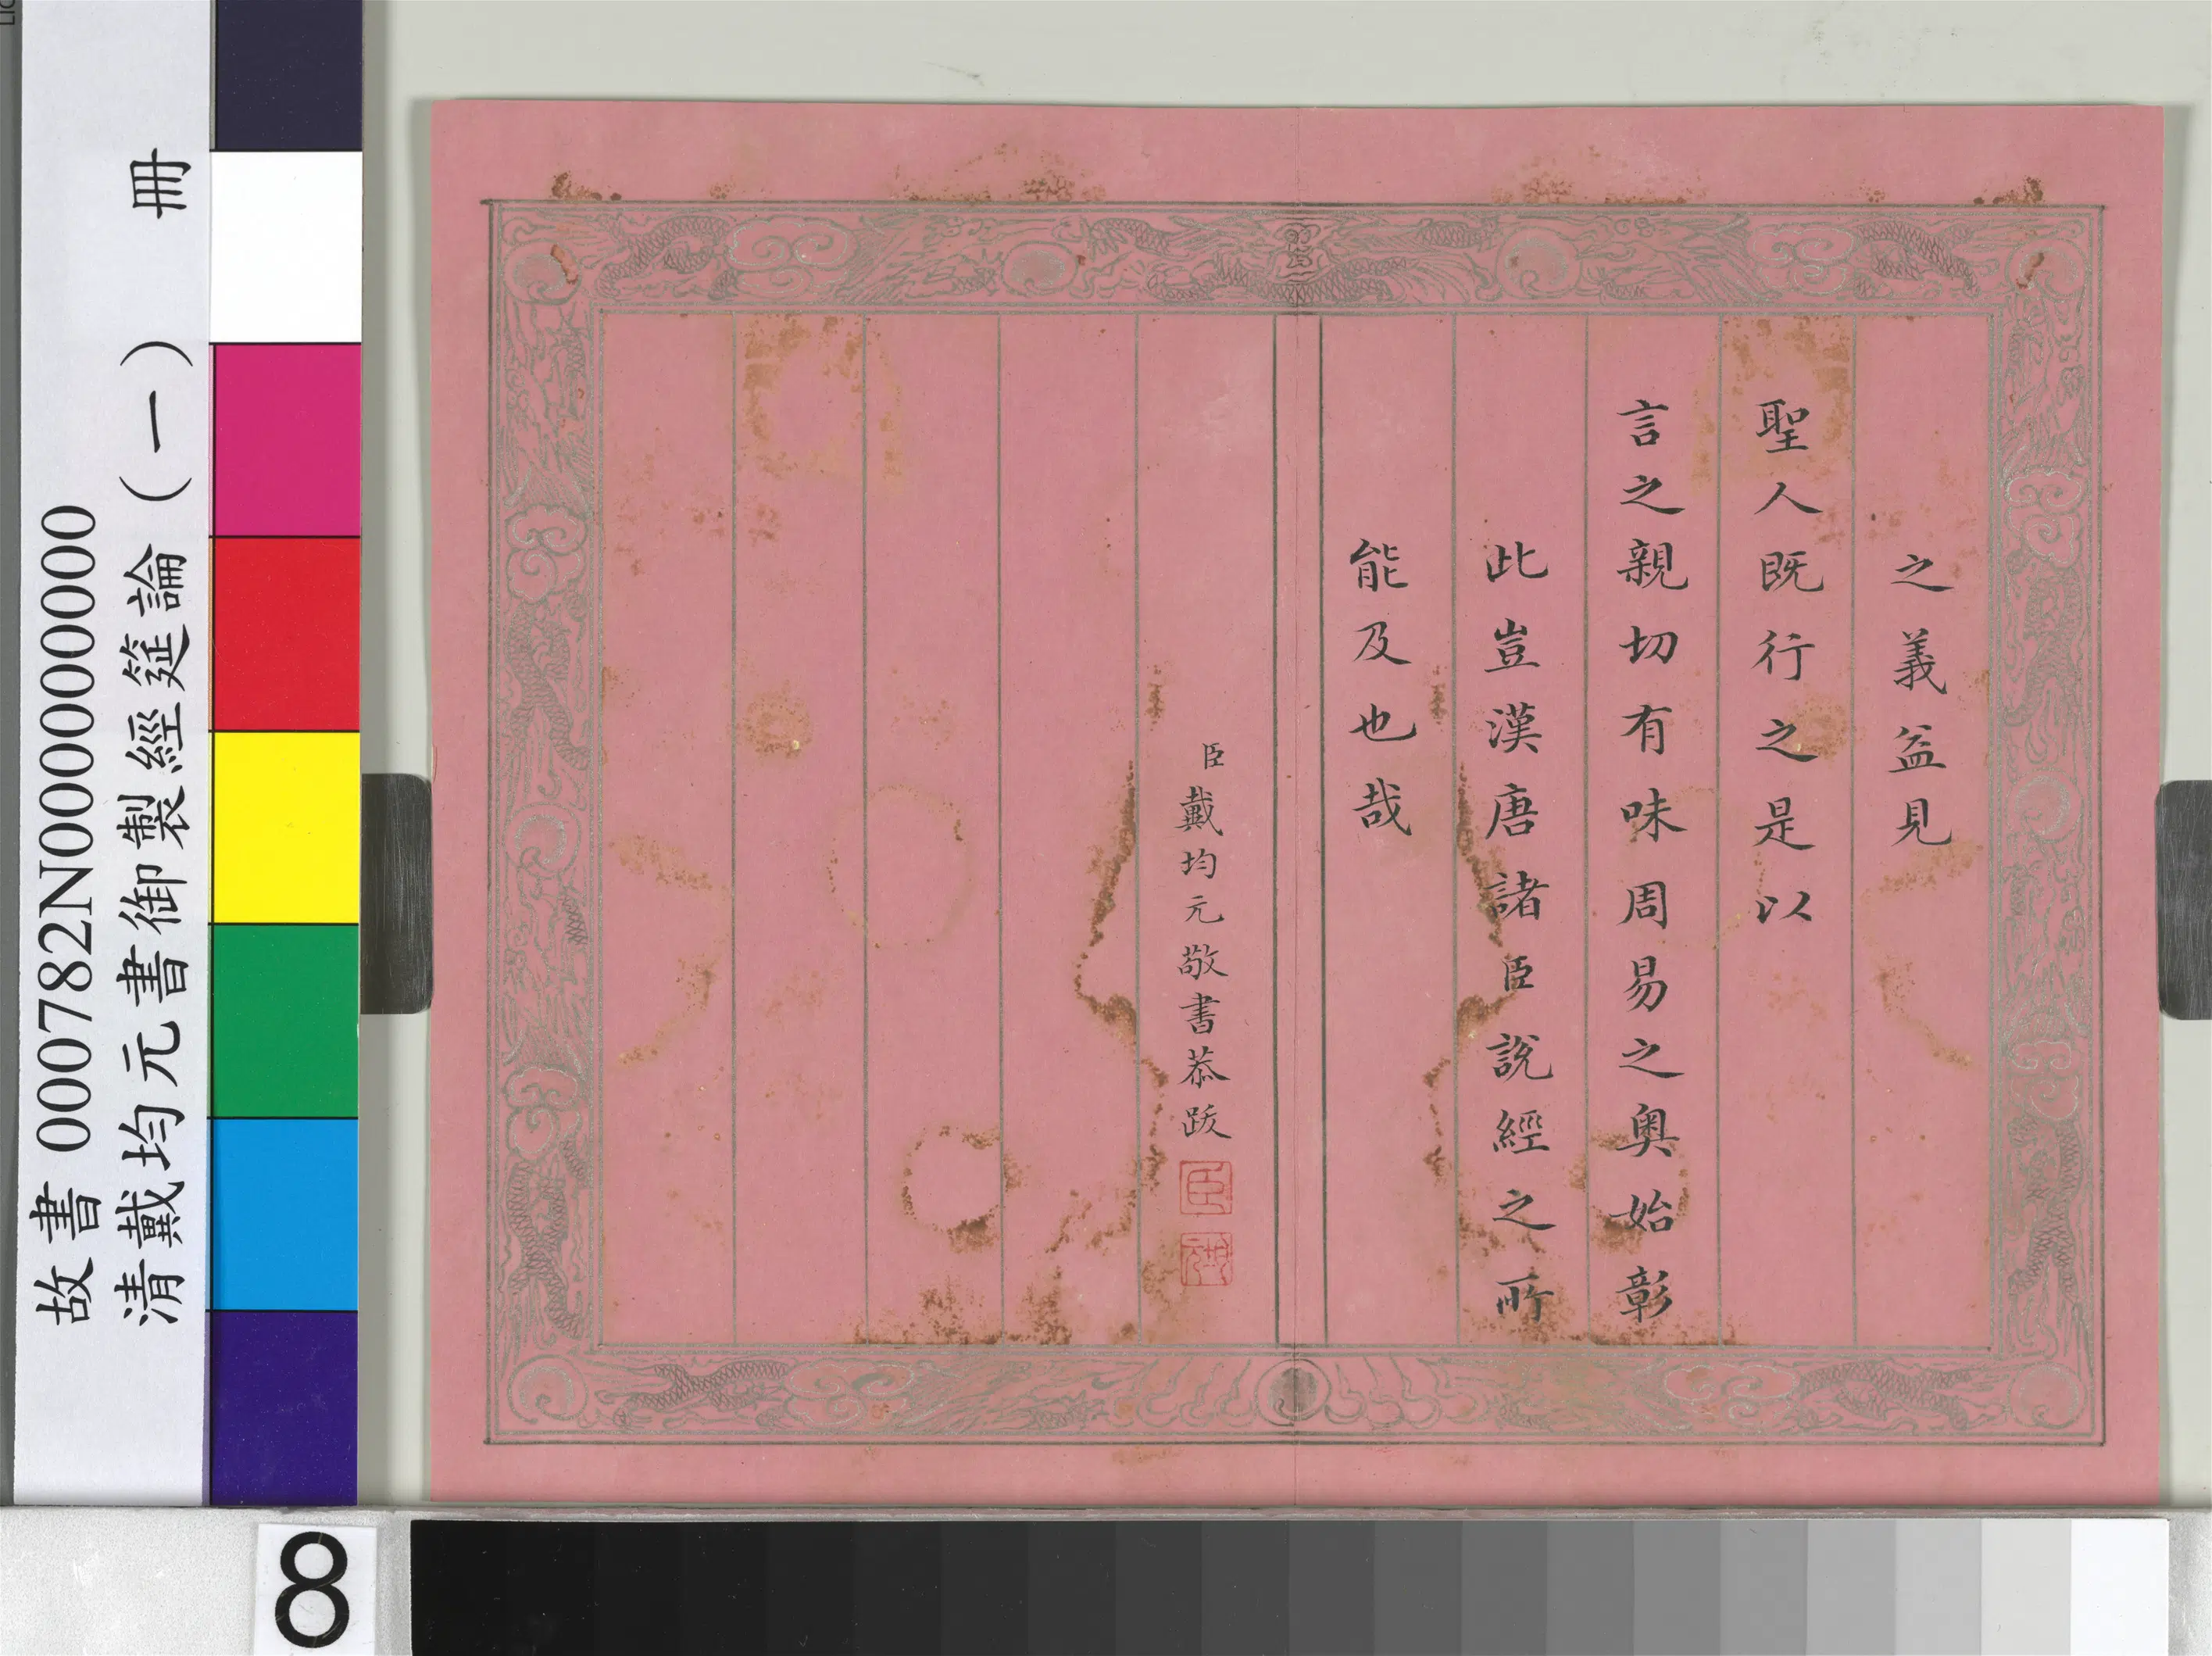 之義益見
聖人既行之是以
言之親切有味周易之奧始彰
此豈漢唐諸臣說經之所
能及也哉
臣戴均元敬書恭跋
臣
故書 000782N000000000
清戴均元書御製經筵論(一) 冊
8